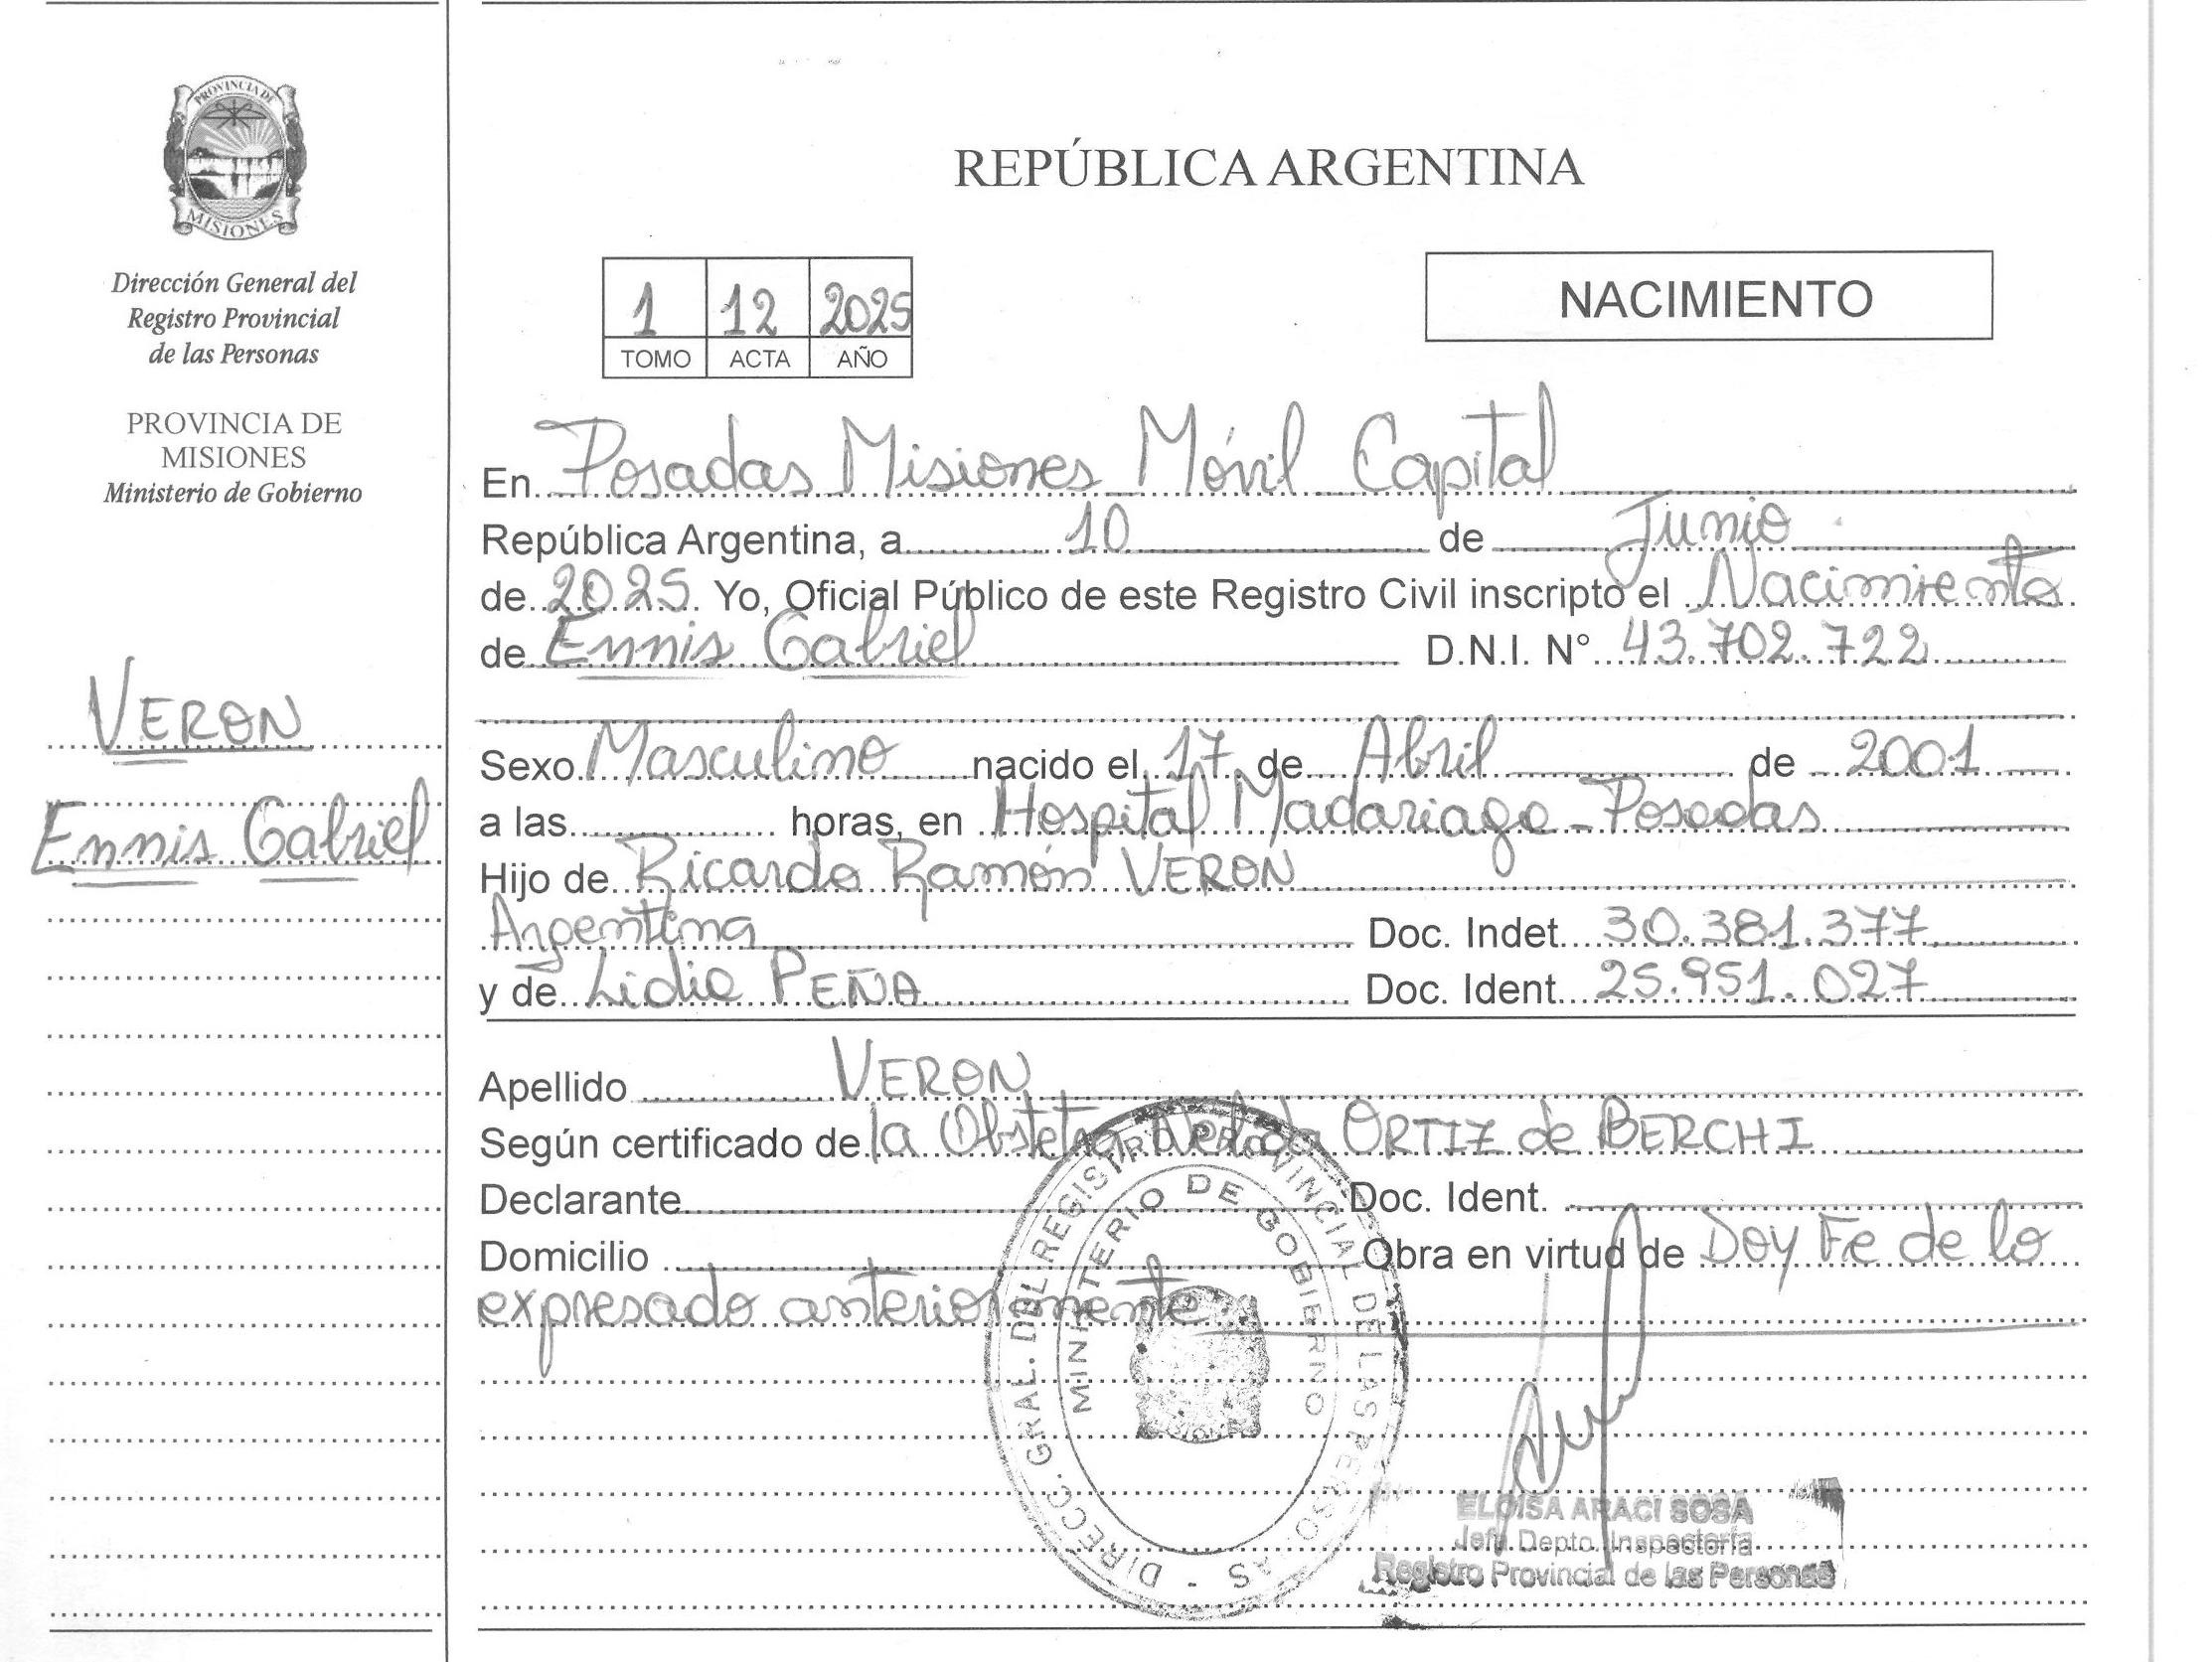 PROVINCIA DE
MISIONES
Dirección General del
Registro Provincial
de las Personas
PROVINCIA DE
MISIONES
Ministerio de Gobierno
VERON
Ennis Gabriel
REPÚBLICA ARGENTINA
1 12 2025
TOMO ACTA AÑO
NACIMIENTO
En Posadas Misiones Móvil Capital
República Argentina, a 10 de Junio
de 2025 Yo, Oficial Público de este Registro Civil inscripto el Nacimiento
de Ennis Gabriel D.N.I. N° 43.702.722
Sexo Masculino nacido el 17 de Abril de 2001
a las horas, en Hospital Madariaga - Posadas
Hijo de Ricardo Ramón VERON
Argentina Doc. Indet. 30.381.377
y de Lidia PEÑA Doc. Ident. 25.951.027
Apellido VERON
Según certificado de la Obstetra Nelida ORTIZ de BERCHI
Declarante Doc. Ident.
Domicilio Obra en virtud de Doy Fe de lo
expresado anteriormente
DIRECC. GRAL. DEL REGISTRO PROVINCIAL DE LAS PERSONAS -
MINISTERIO DE GOBIERNO
ELOISA ARACI SOSA
Jefa Depto. Inspectoría
Registro Provincial de las Personas